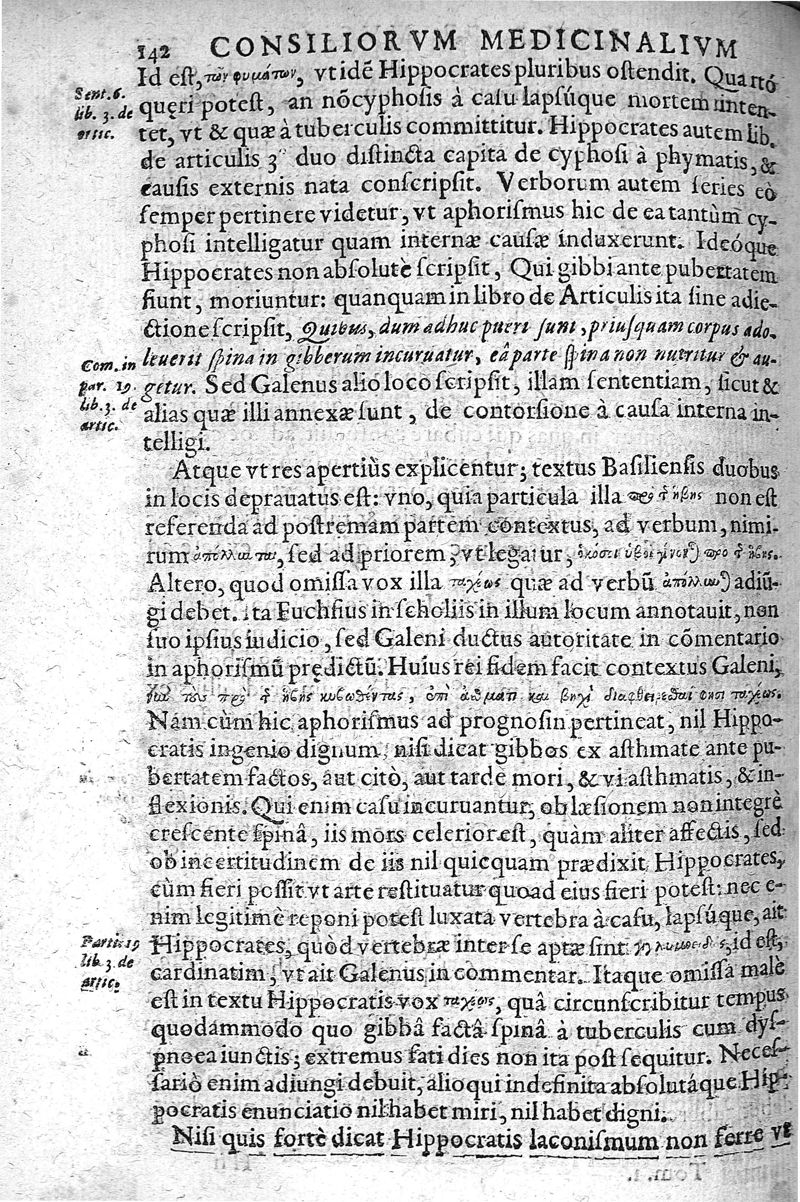 142 CONSILIORVM MEDICINALIVM
Id est, τῶν φυμάτων, vt idē Hippocrates pluribus oſtendit. Quartó
Sent. 6.
lib. 3. de
artic.
quęri poteſt, an nō cyphoſis à caſu lapſúque mortem inten-
tet, vt & quæ à tuberculis committitur. Hippocrates autem lib.
de articulis 3° duo diſtincta capita de cyphoſi à phymatis, &
cauſis externis nata conſcripſit. Verborum autem ſeries eò
ſemper pertinere videtur, vt aphoriſmus hic de ea tantùm cy-
phoſi intelligatur quam internæ cauſæ induxerunt. Ideóque
Hippocrates non abſolutè ſcripſit, Qui gibbi ante pubertatem
fiunt, moriuntur: quanquam in libro de Articulis ita ſine adie-
ctione ſcripſit, Quibus, dum adhuc pueri ſunt, priuſquam corpus ado-
Com. in
par. 19.
lib. 3. de
artic.
leuerit ſpina in gibberum incuruatur, eâ parte ſpina non nutritur & au-
getur. Sed Galenus alio loco ſcripſit, illam ſententiam, ſicut &
alias quæ illi annexæ ſunt, de contorſione à cauſa interna in-
telligi.
Atque vt res apertiùs explicentur; textus Baſilienſis duobus
in locis deprauatus eſt: vno, quia particula illa πρὸ τῆς ἥβης non eſt
referenda ad poſtremam partem contextus, ad verbum, nimi-
rum ἀπόλλυνται, ſed ad priorem; vt legatur, ὁκόσοι ὑβοὶ γίνονται πρὸ τῆς ἥβης.
Altero, quod omiſſa vox illa ταχέως quæ ad verbū ἀπόλλυνται adiū-
gi debet. ita Fuchſius in ſcholiis in illum locum annotauit, non
ſuo ipſius iudicio, ſed Galeni ductus autoritate in cōmentario
in aphoriſmū prędictū. Huius rei fidem facit contextus Galeni,
τοὺς πρὸ τῆς ἥβης κυφωθέντας, ἐπὶ ἄσθματι καὶ βηχὶ διαφθείρεσθαί φησι ταχέως.
Nam cùm hic aphoriſmus ad prognoſin pertineat, nil Hippo-
cratis ingenio dignum, niſi dicat gibbos ex aſthmate ante pu-
bertatem factos, aut citò, aut tarde mori, & vi aſthmatis, & in-
flexionis. Qui enim caſu incuruantur, ob læſionem non integrè
creſcente ſpinâ, iis mors celerior eſt, quàm aliter affectis, ſed
ob incertitudinem de iis nil quicquam prædixit Hippocrates,
cùm fieri poſſit vt arte reſtituatur quoad eius fieri poteſt: nec e-
nim legitimè reponi poteſt luxata vertebra à caſu, lapſúque, ait
Parti. 19
lib. 3. de
artic.
Hippocrates, quòd vertebræ inter ſe aptæ ſint γιγγλυμοειδῶς, id eſt,
cardinatim, vt ait Galenus in commentar. Itaque omiſſa malè
eſt in textu Hippocratis vox ταχέως, quâ circunſcribitur tempus
quodammodo quo gibbâ factâ ſpinâ à tuberculis cum dyſ-
pnœa iunctis; extremus fati dies non ita poſt ſequitur. Neceſ-
ſariò enim adiungi debuit, alioqui indefinita abſolutáque Hip-
pocratis enunciatio nil habet miri, nil habet digni.
Niſi quis fortè dicat Hippocratis laconiſmum non ferre vt